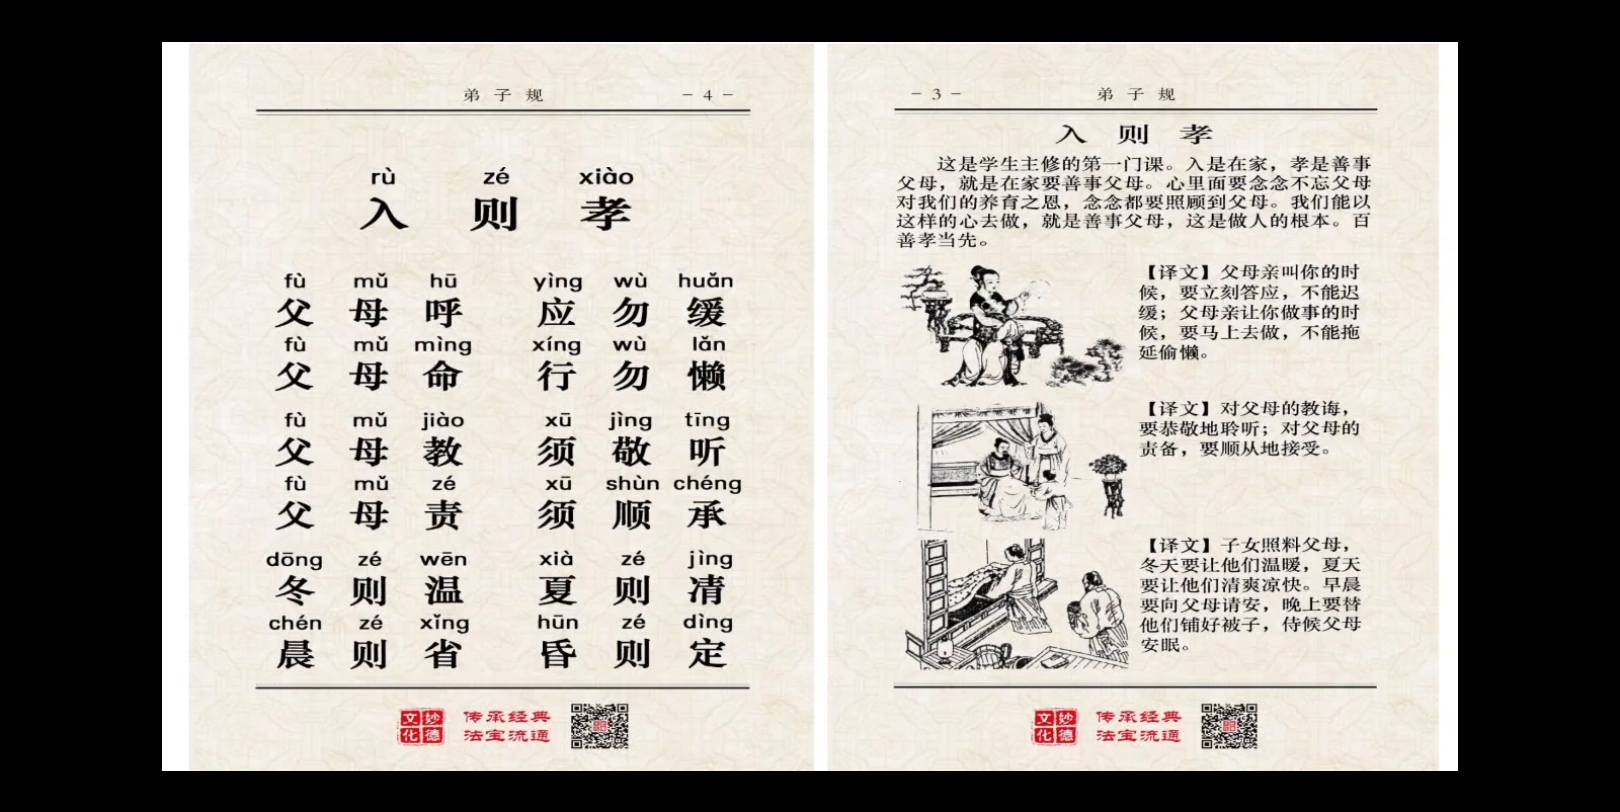 弟子规
- 4 -
rù zé xiào
入则孝
fù mǔ hū yìng wù huǎn
父母呼 应勿缓
fù mǔ mìng xíng wù lǎn
父母命 行勿懒
fù mǔ jiào xū jìng tīng
父母教 须敬听
fù mǔ zé xū shùn chéng
父母责 须顺承
dōng zé wēn xià zé jìng
冬则温 夏则凊
chén zé xǐng hūn zé dìng
晨则省 昏则定
文妙
化德
传承经典
法宝流通
- 3 -
弟子规
入则孝
这是学生主修的第一门课。入是在家，孝是善事
父母，就是在家要善事父母。心里面要念念不忘父母
对我们的养育之恩，念念都要照顾到父母。我们能以
这样的心去做，就是善事父母，这是做人的根本。百
善孝当先。
【译文】父母亲叫你的时
候，要立刻答应，不能迟
缓；父母亲让你做事的时
候，要马上去做，不能拖
延偷懒。
【译文】对父母的教诲，
要恭敬地聆听；对父母的
责备，要顺从地接受。
【译文】子女照料父母，
冬天要让他们温暖，夏天
要让他们清爽凉快。早晨
要向父母请安，晚上要替
他们铺好被子，侍候父母
安眠。
文妙
化德
传承经典
法宝流通